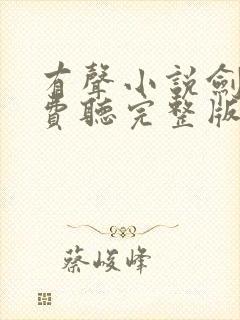 有聲小說劍
費聽完整版
蔡峻峰